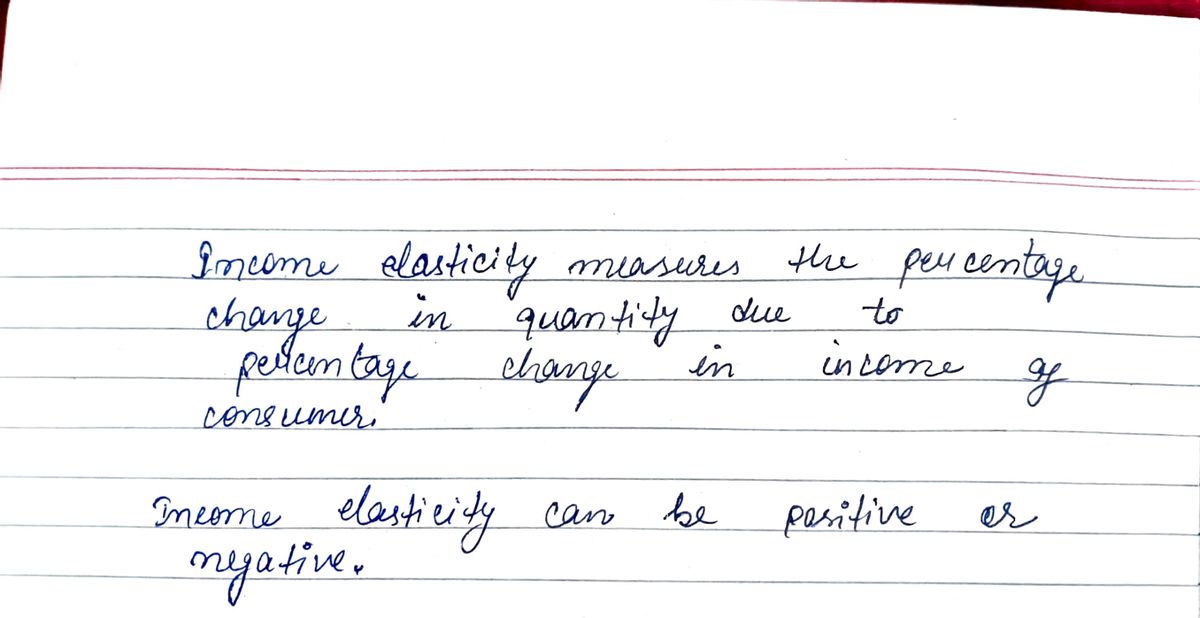 Income elasticity measures the percentage
change in quantity due to
percentage change in income of
consumer.
Income elasticity can be positive or
negative.